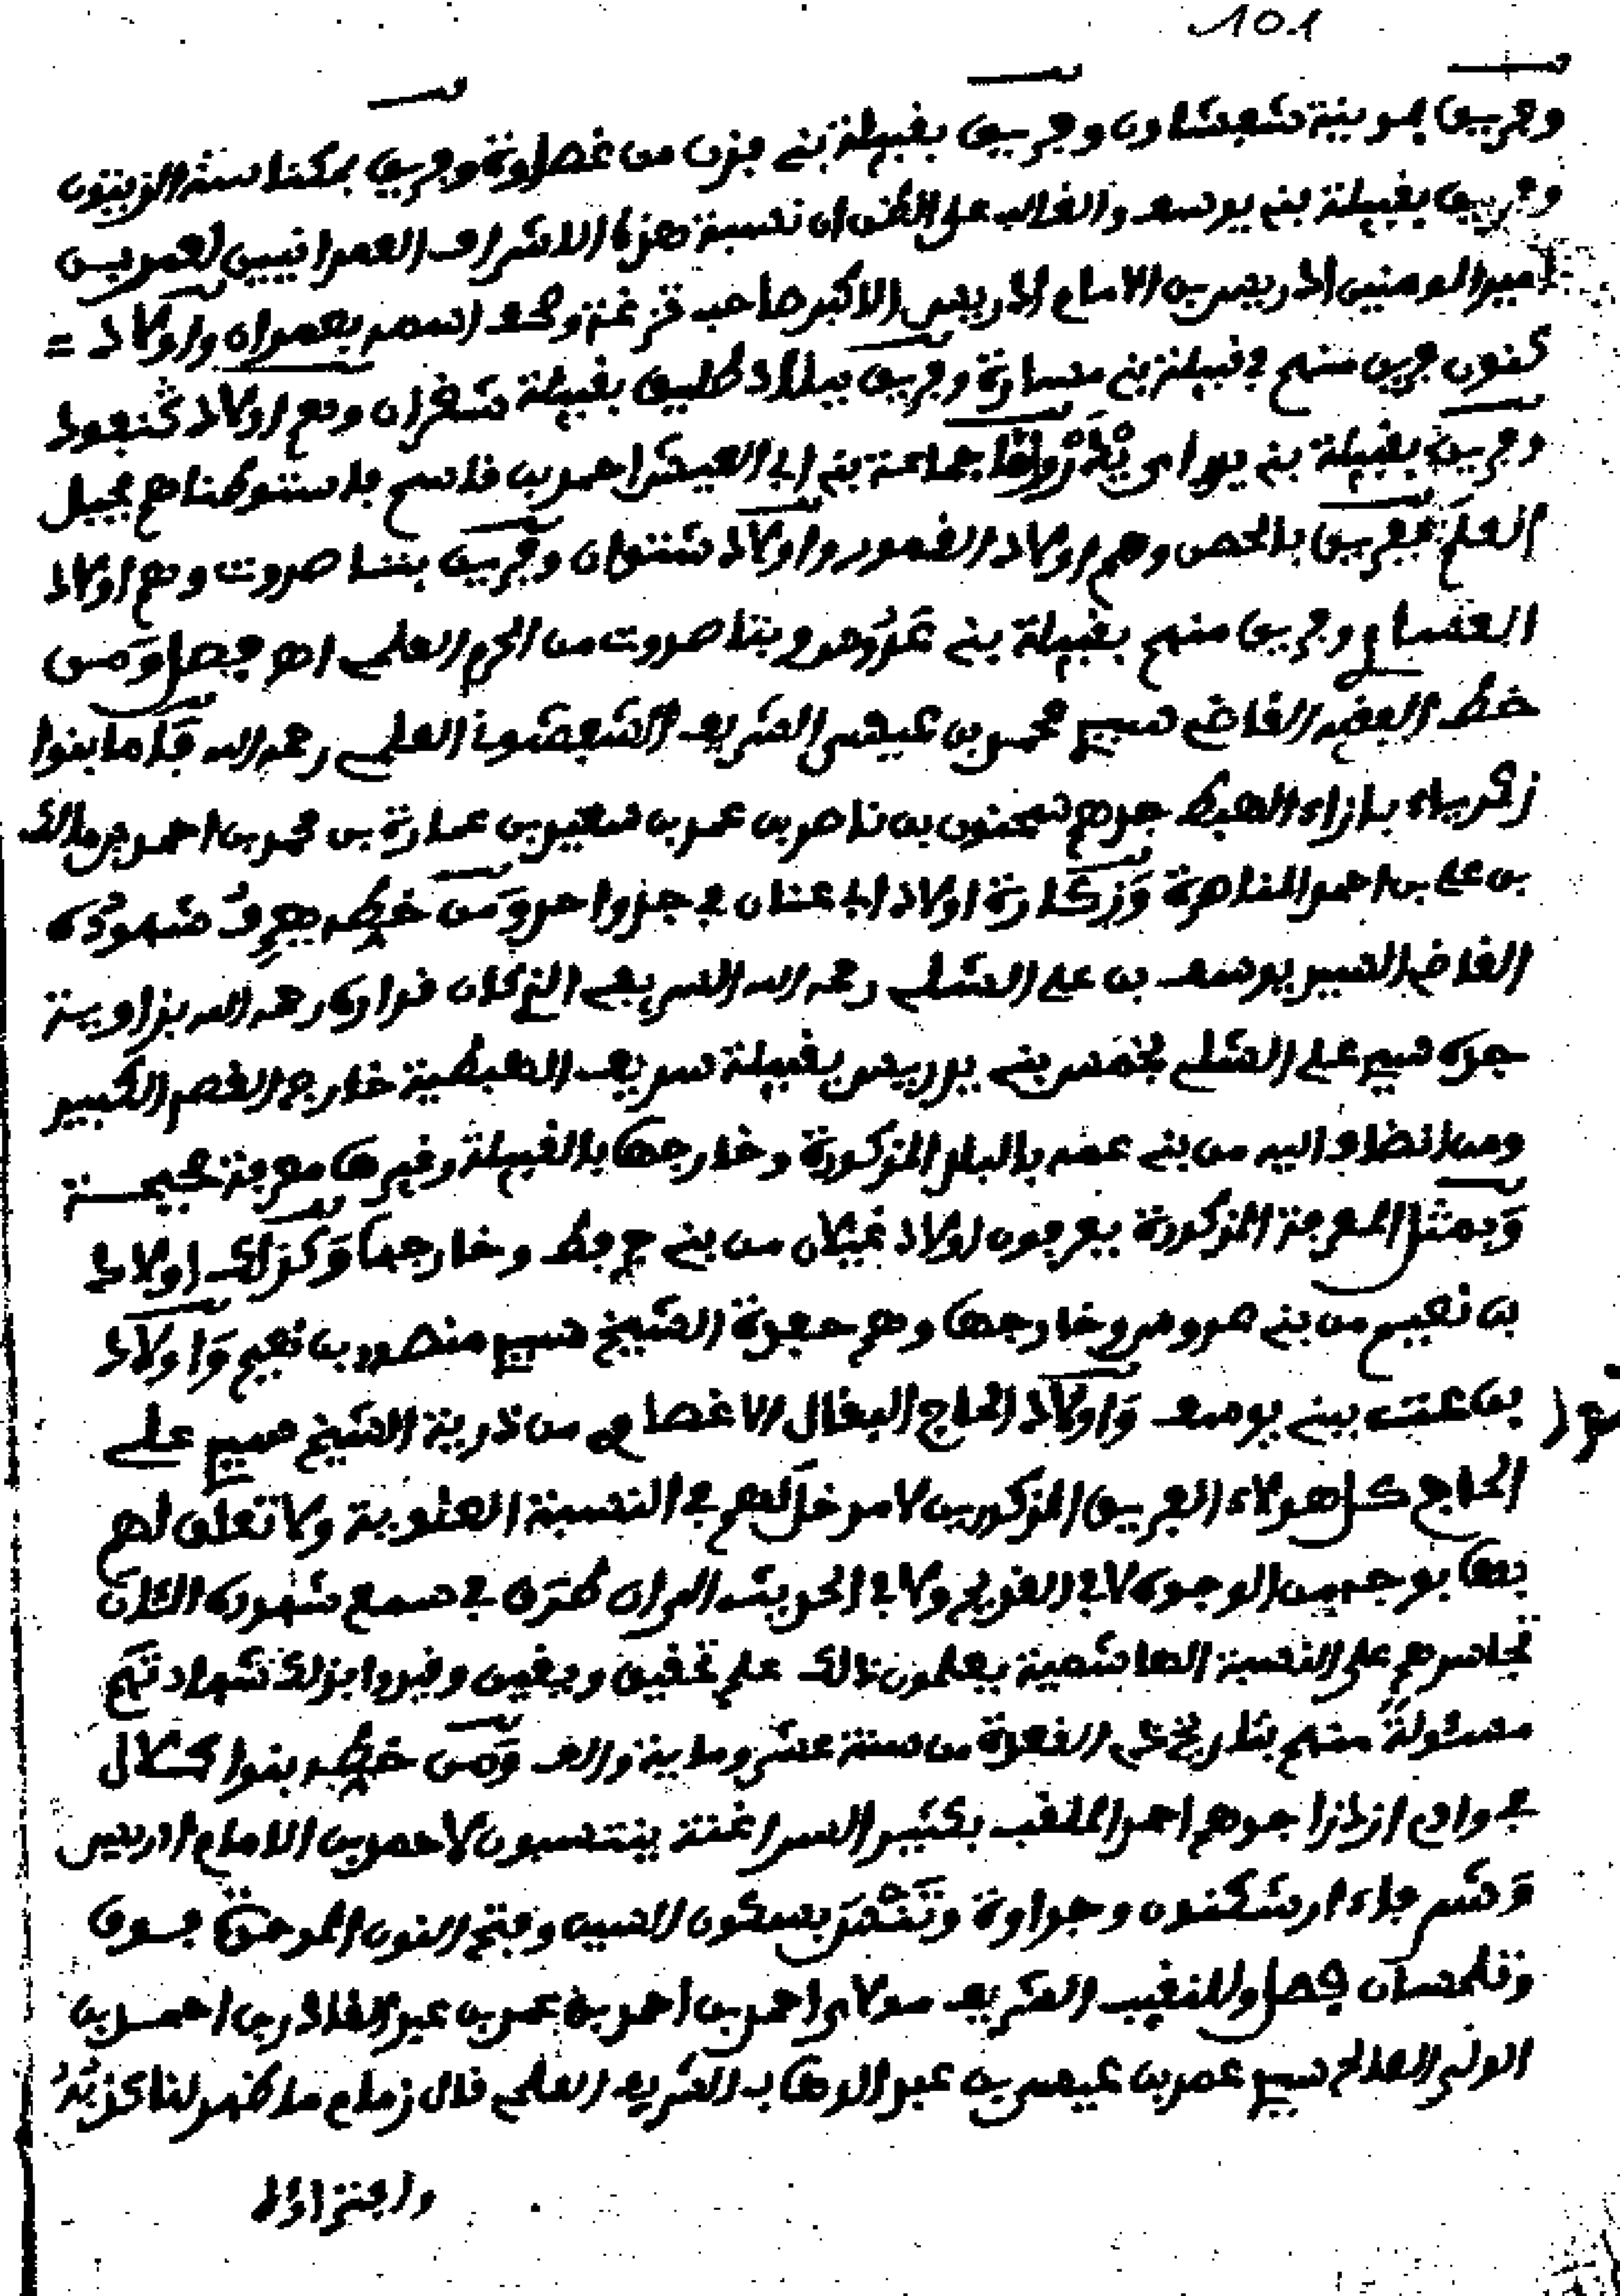 101
وفريق بمدينة شفشاون وفريق بقبيلة بني فزن من غصاوة وفريق بمكناسة الزيتون
وفريق بقبيلة بني يوسف والغالب على الظن ان نسبة هؤلا الاشراف العمرانيين لعمر بن
امير المومنين ادريس بن الامام ادريس الاكبر صاحب فزغة واولاد =
كنون فريق منهم في قبيلة بني مسارة وفريق ببلاد طليق بقبيلة ومع اولاد شقور
وفريق بقبيلة بني جماعة بني ابي العيش احمد بن قاسم باستوطنا هم بجبل
العلم ففريق بالحصن وهم اولاد الغمور واولاد شتوان وفريق بتناصروت وهم اولاد
وفريق منهم بقبيلة بني عروس وبتاصروت من الحرم العلمي اهـ فصل ومن
خط الفقيه القاضي سيدي محمد بن عيسى الشريف الشفشوني العلمي رحمه الله فاما بنوا
زكرياء بازاء الهبط جدهم سحنون بن ناصر بن عمر بن سعيد بن عمارة بن محمد بن احمد بن مالك
بن علي بن احمد المناصرة وزكارة اولاد ابي عنان في جد واحد ومن خطه يعرف شهوده
القاضي السيد يوسف بن علي الشلي رحمه الله السريفي الذي كان قراره رحمه الله بزاوية
جده سيدي علي الشلي بخمس بني يوريس بقبيلة سريف الهبطية خارج القصر الكبير
ومن انضاف اليه من بني عمه بالبلد المذكورة وخارجها بالقبيلة وغيرها معرفة صحيحة
وبمثل المعرفة المذكورة يعرفون اولاد غيلان من بني جرفط وخارجها وكذلك اولاد
بن نعيم من بني وخارجها وهم حفدة الشيخ سيدي منصور بن نعيم واولاد
بن عتت ببني يوسف واولاد الحاج البقال الاغصاوي من ذرية الشيخ سيدي علي
الحاج كل هولاء الفريق المذكورين لا مدخل لهم في النسبة العلوية ولا تعلق لهم
بها بوجه من الوجوه لا في القديم ولا في الحديث الى ان طرق في سمع شهوده الئان
تجاسرهم على النسبة الهاشمية يعلمون ذالك علم تحقيق ويقين وقيدوا بذلك شهادتهم
مسئولة منهم بتاريخ ذي القعدة من سنة عشر وماية والف ومن خطه بنوا كلال
بوادي ازلزا جدهم احمد الملقب بكثير السراغنة ينتسبون لاحمد بن الامام ادريس
وشم جاء ارشكنون وجراوة وتنسر بسكون السين وفتح النون الموحق بسوق
وتلمسان فصل وللنقيب الشريف مولاي احمد بن احمد بن عمر بن عبد القادر بن احمد بن
الولي الصالح سيدي عمر بن عيسى بن عبد الوهاب الشريف العلمي قال زمام ما ظهر لنا كذبه
وافتراؤا